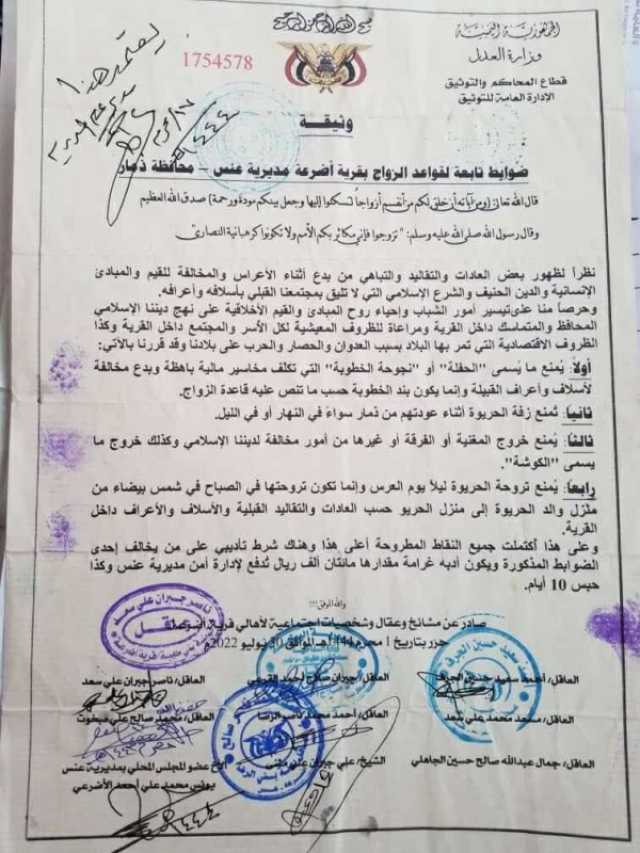 بسم الله الرحمن الرحيم
الجمهورية اليمنية
وزارة العدل
قطاع المحاكم والتوثيق
الإدارة العامة للتوثيق
1754578
يعتمد هذا
وثيقة
ضوابط تابعة لقواعد الزواج بقرية أضرعة مديرية عنس – محافظة ذمار
قال الله تعالى (ومن آياته أن خلق لكم من أنفسكم أزواجاً لتسكنوا إليها وجعل بينكم مودة ورحمة) صدق الله العظيم
وقال رسول الله صلى الله عليه وسلم: "تزوجوا فإني مكاثر بكم الأمم ولا تكونوا كرهبانية النصارى"
نظراً لظهور بعض العادات والتقاليد والتباهي من بدع أثناء الأعراس والمخالفة للقيم والمبادئ
الإنسانية والدين الحنيف والشرع الإسلامي التي لا تليق بمجتمعنا القبلي بأسلافه وأعرافه.
وحرصاً منا على تيسير أمور الشباب وإحياء روح المبادئ والقيم الأخلاقية على نهج ديننا الإسلامي
المحافظ والمتماسك داخل القرية ومراعاة للظروف المعيشية لكل الأسر والمجتمع داخل القرية وكذا
الظروف الاقتصادية التي تمر بها البلاد بسبب العدوان والحصار والحرب على بلادنا وقد قررنا بالآتي:
أولاً: يُمنع ما يسمى "الحفلة" أو "نجوحة الخطوبة" التي تكلف مخاسير مالية باهظة وبدع مخالفة
لأسلاف وأعراف القبيلة وإنما يكون بند الخطوبة حسب ما تنص عليه قاعدة الزواج.
ثانياً: تُمنع زفة الحريوة أثناء عودتهم من ذمار سواءً في النهار أو في الليل.
ثالثاً: يُمنع خروج المغنية أو الفرقة أو غيرها من أمور مخالفة لديننا الإسلامي وكذلك خروج ما
يسمى "الكوشة".
رابعاً: يُمنع تروحة الحريوة ليلاً يوم العرس وإنما تكون تروحتها في الصباح في شمس بيضاء من
منزل والد الحريوة إلى منزل الحريو حسب العادات والتقاليد القبلية والأسلاف والأعراف داخل
القرية.
وعلى هذا أكتملت جميع النقاط المطروحة أعلى هذا وهناك شرط تأديبي على من يخالف إحدى
الضوابط المذكورة ويكون أدبه غرامة مقدارها مائتان ألف ريال تُدفع لإدارة أمن مديرية عنس وكذا
حبس 10 أيام.
والله الموفق!!!
صادر عن مشائخ وعقال وشخصيات اجتماعية لأهالي قرية أضرعة
حرر بتاريخ 1 محرم 144هـ الموافق 30 يوليو 2022م
العاقل/ أحمد سعيد حسين
العاقل/ جبران صلاح أحمد
العاقل/ ناصر جبران علي سعد
العاقل/ محمد علي سعد
العاقل/ أحمد محمد ناصر الرضا
العاقل/ محمد صالح علي
العاقل/ جمال عبدالله صالح حسين الجاهلي
الشيخ/ علي جبران علي
عضو المجلس المحلي بمديرية عنس
يونس محمد علي أحمد الأضرعي
ناصر جبران علي سعد